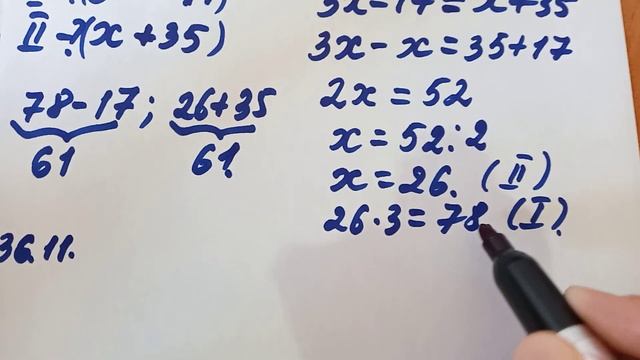 II - (x + 35)
78-17 ; 26+35
61 61.
36.11.
3x-17 = x+35
3x - x = 35+17
2x = 52
x = 52:2
x = 26. (II)
26·3 = 78 (I).